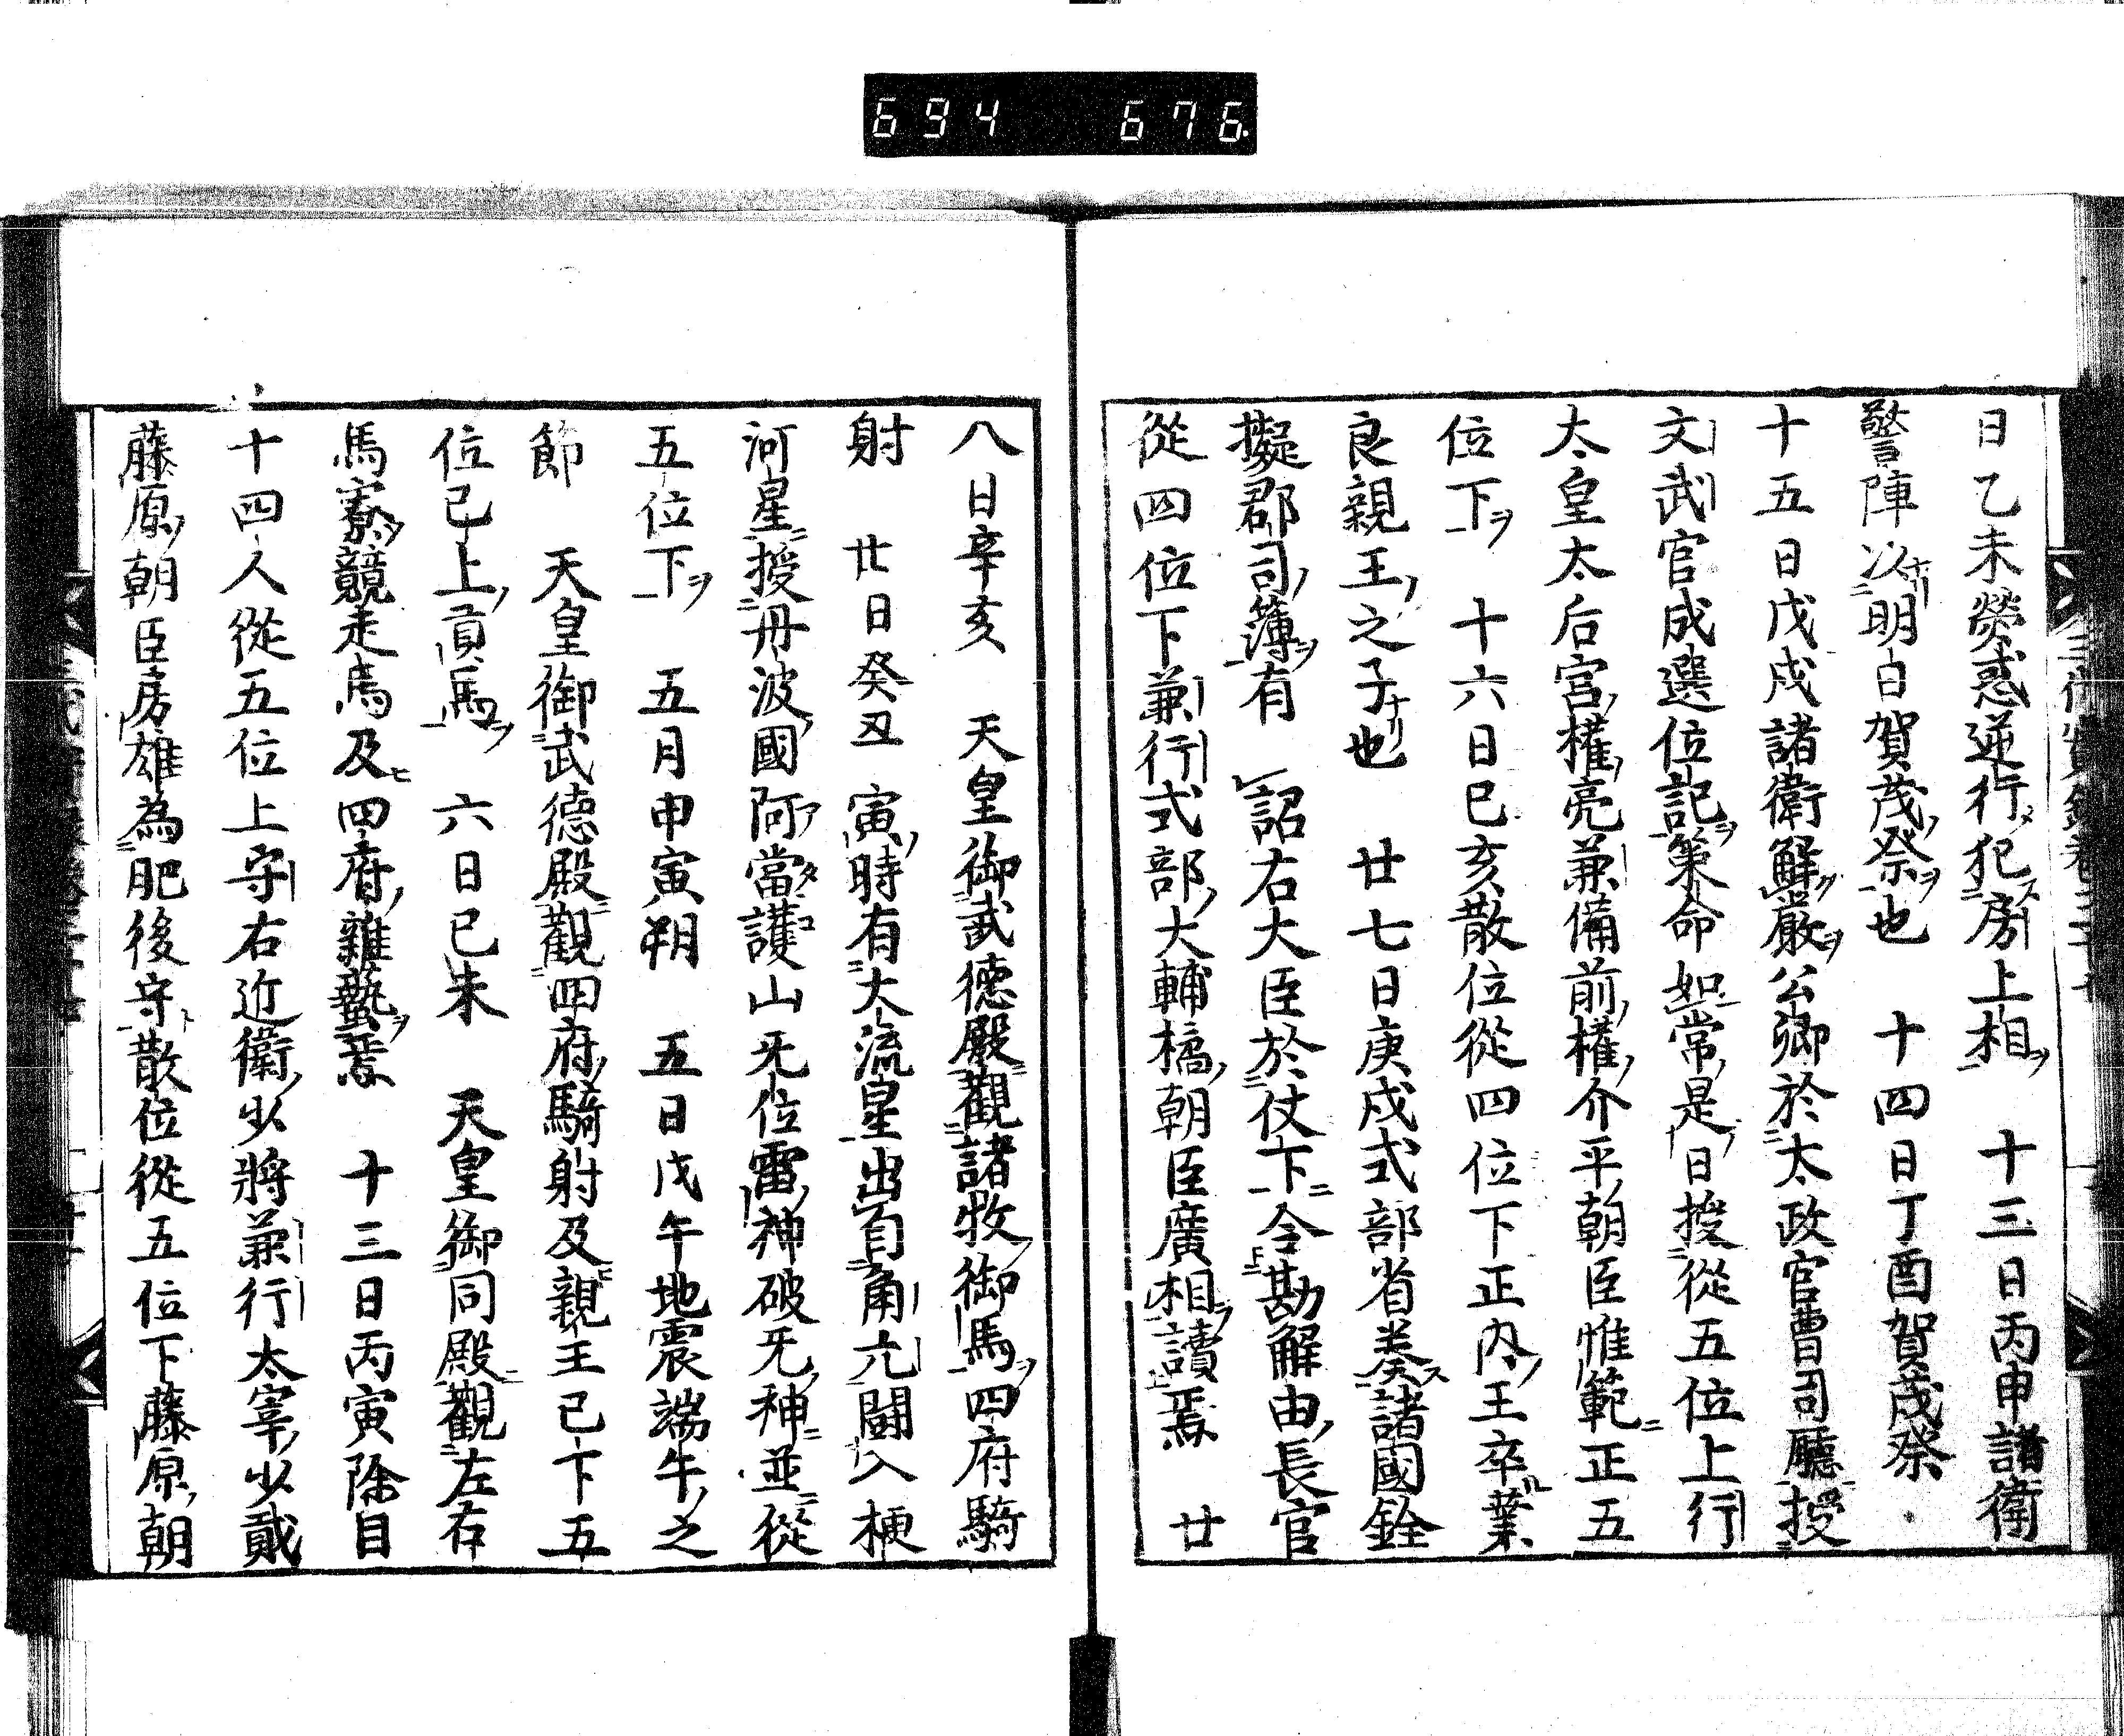 694 676.
日乙未熒惑逆行犯房上相　十三日丙申諸衛
警陣以明日賀茂祭也　十四日丁酉賀茂祭
十五日戊戌諸衛解嚴公卿於太政官曹司廳授
文武官成選位記策命如常是日授從五位上行
太皇太后宮權亮兼備前權介平朝臣惟範正五
位下　十六日己亥散位從四位下正內王卒葉
良親王之子也　廿七日庚戌式部省奏諸國銓
擬郡司簿有　詔右大臣於仗下令勘解由長官
從四位下兼行式部大輔橘朝臣廣相讀焉　廿
八日辛亥　天皇御武德殿觀諸牧御馬四府騎
射　廿日癸丑　寅時有大流星出自角亢闘入梗
河星授丹波國阿當護山无位雷神破无神並從
五位下　五月甲寅朔　五日戊午地震端午之
節　天皇御武德殿觀四府騎射及親王已下五
位已上貢馬　六日己未　天皇御同殿觀左右
馬寮競走馬及四府雜藝焉　十三日丙寅除目
十四人從五位上守右近衛少將兼行太宰少貳
藤原朝臣房雄為肥後守散位從五位下藤原朝